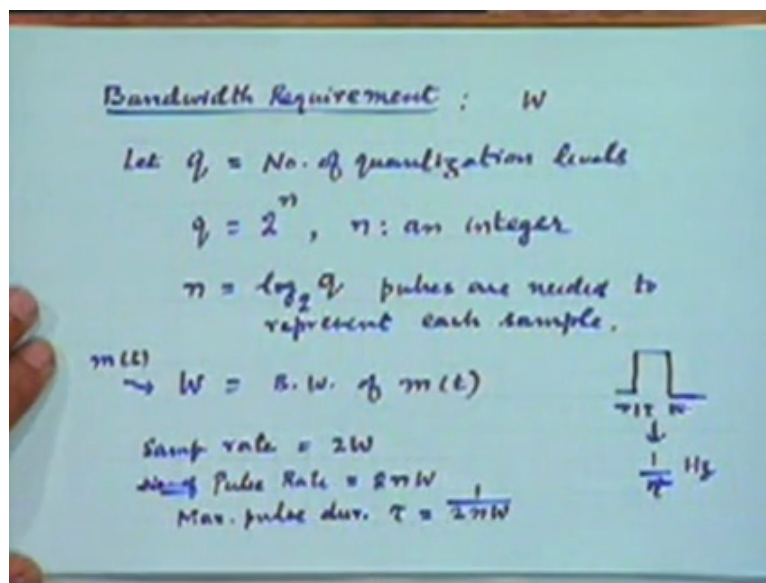 Bandwidth Requirement : W
Let q = No. of quantization levels
q = 2^n, n: an integer
n = log_2 q pulses are needed to
represent each sample.
m(t)
W = B.W. of m(t)
Samp rate = 2W
Pulse Rate = 2nW
Max. pulse dur. τ = 1/2nW
1/τ Hz